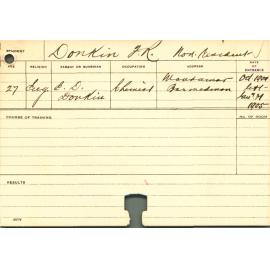 STUDENT Donkin F.R. Non. Resident)
AGE RELIGION PARENT OR GUARDIAN OCCUPATION ADDRESS DATE OF ENTRANCE
27 Eng. C. D. Donkin Chemist Barmedman Oct 1904
1905
COURSE OF TRAINING NO. OF ROOM
RESULTS
NOTE